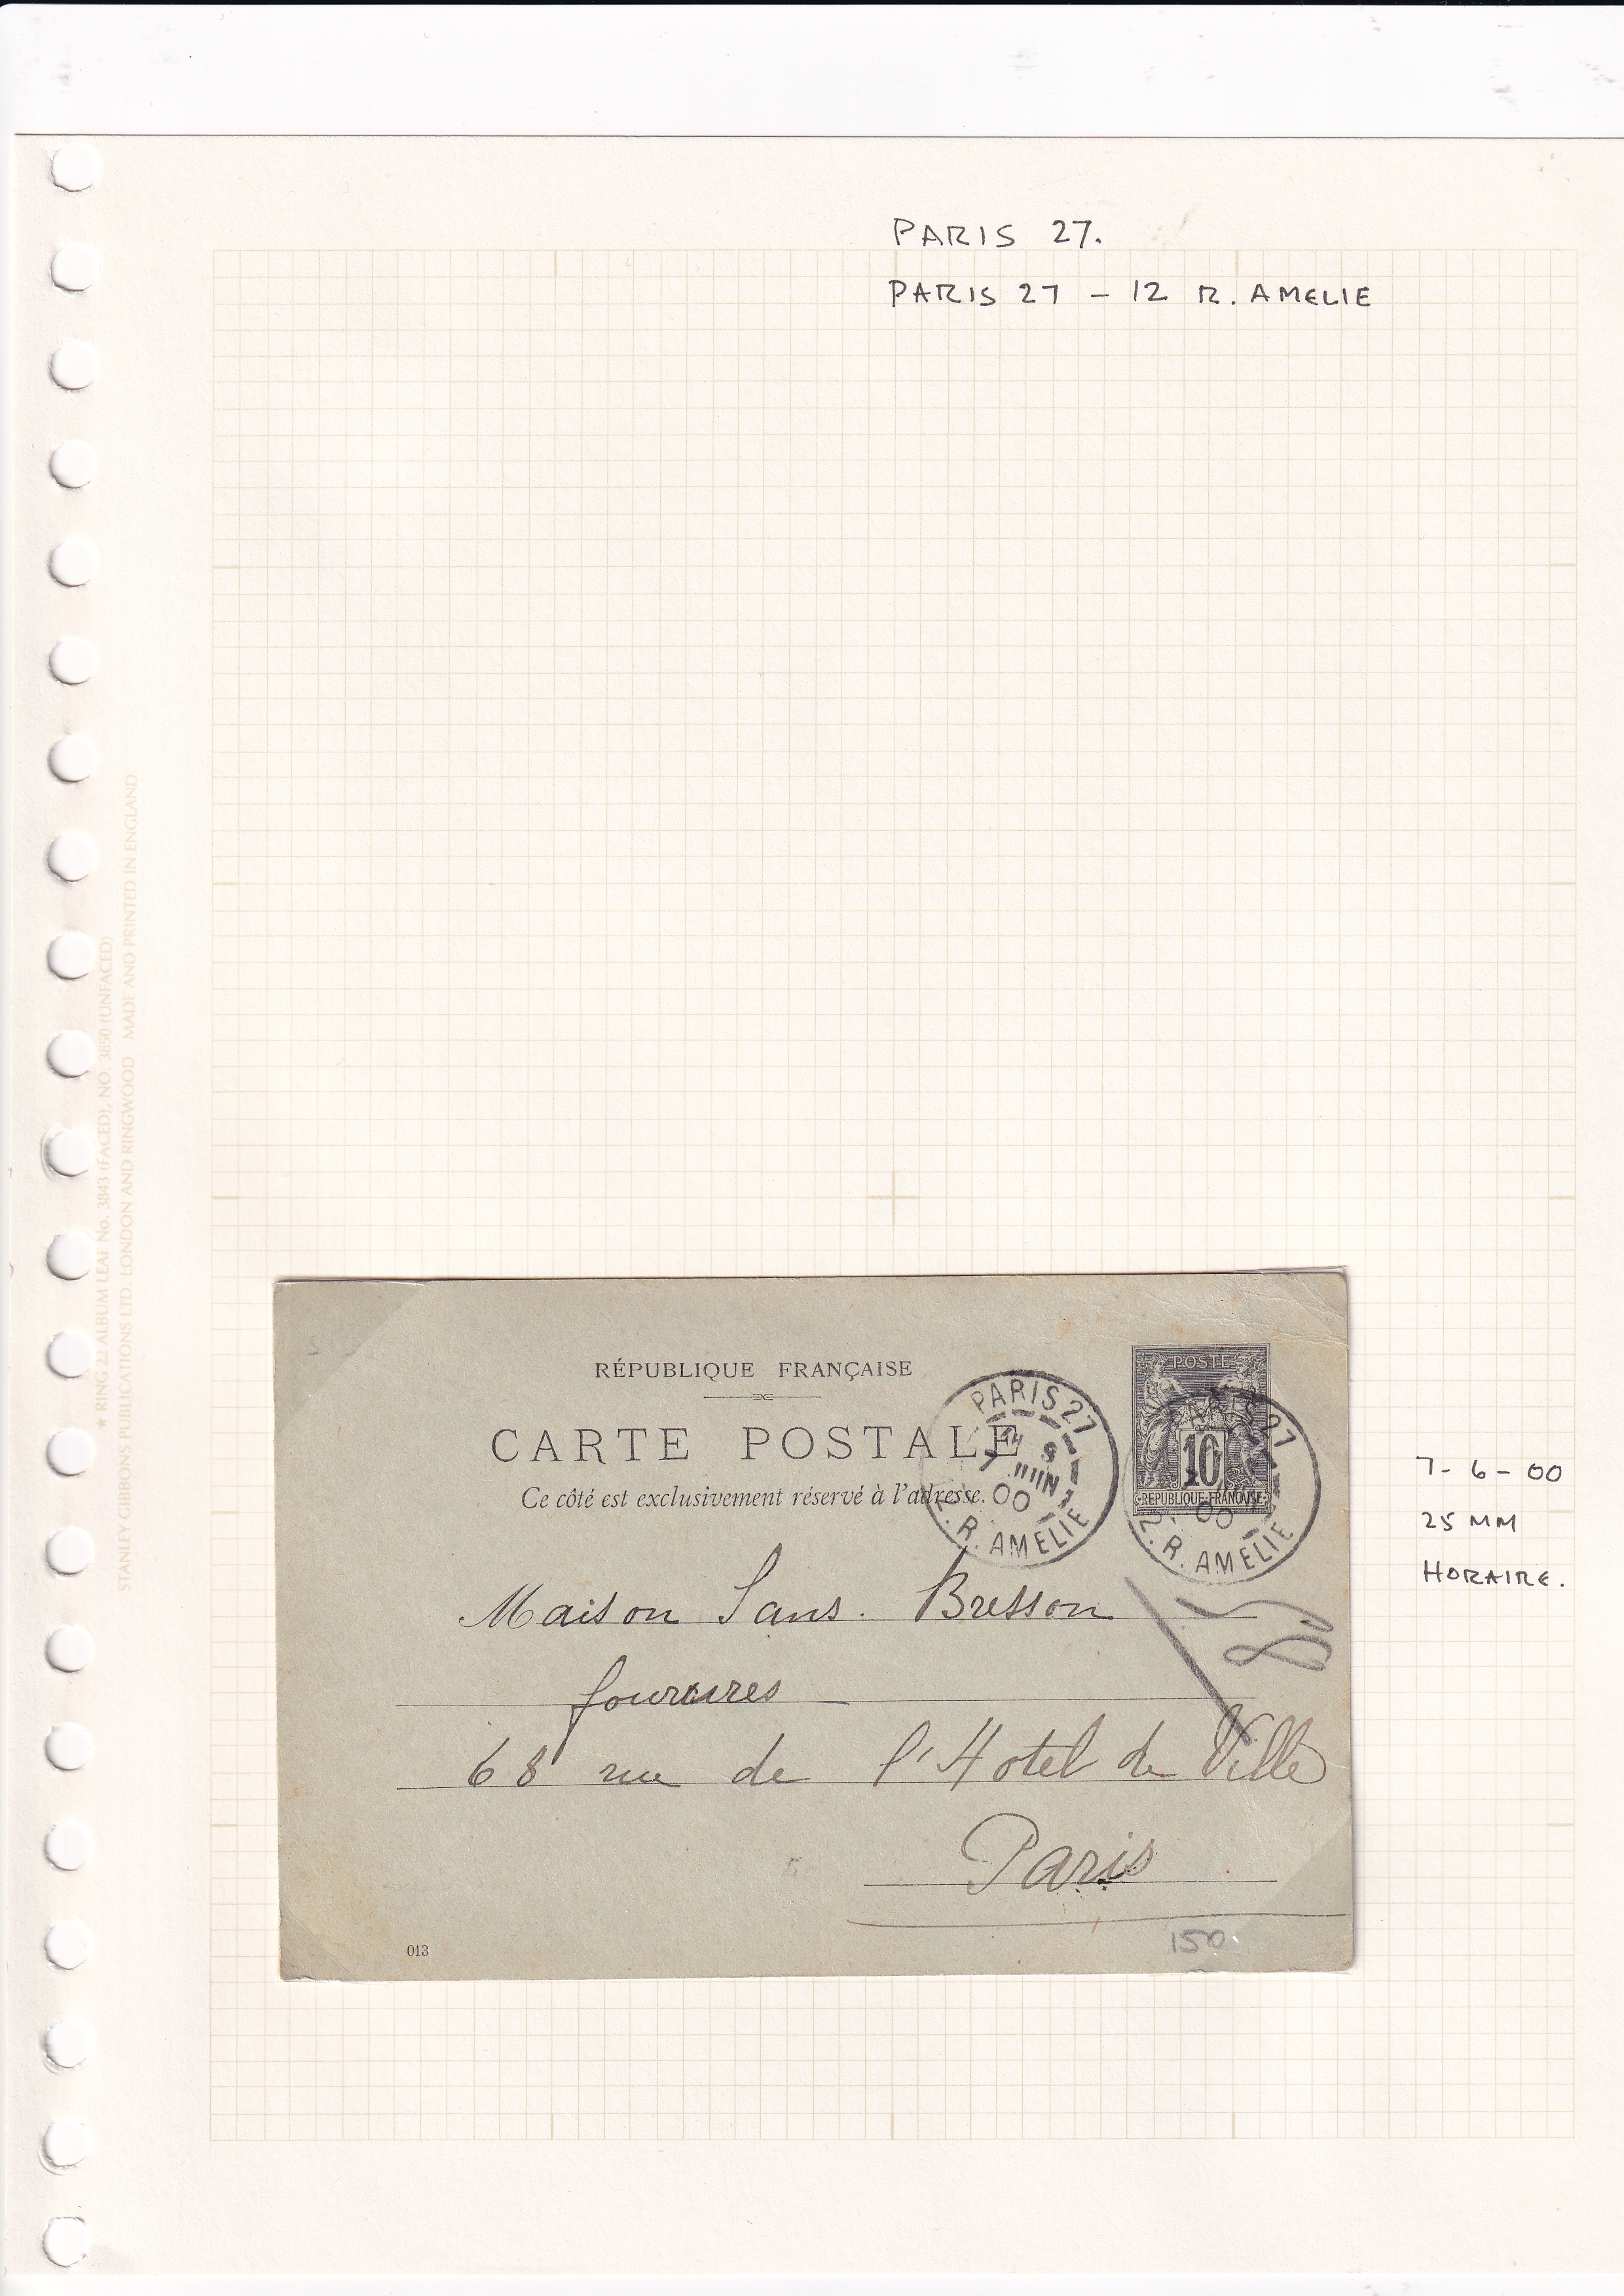 PARIS 27.
PARIS 27 - 12 R. AMELIE
★ RING 22 ALBUM LEAF No. 3843 (FACED), NO. 3850 (UNFACED)
STANLEY GIBBONS PUBLICATIONS LTD. LONDON AND RINGWOOD MADE AND PRINTED IN ENGLAND
RÉPUBLIQUE FRANÇAISE
CARTE POSTALE
Ce côté est exclusivement réservé à l'adresse.
PARIS 27
7 JUIN
00
R. AMELIE
POSTE
10
REPUBLIQUE FRANÇAISE
PARIS 27
00
R. AMELIE
7-6-00
25 MM
HORAIRE.
Maison Sans. Bresson
fourrures
68 rue de l'Hotel de Ville
Paris
013
150